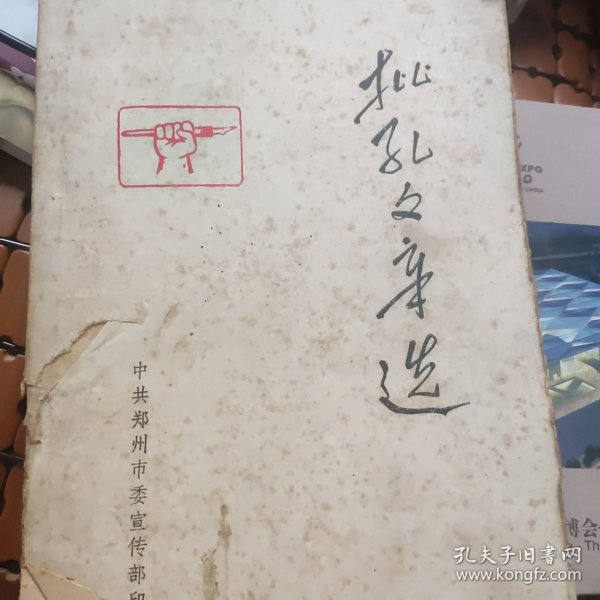 批孔文章选
中共郑州市委宣传部印
XPO
CHINA
博会
Th
孔夫子旧书网
www.kongfz.com